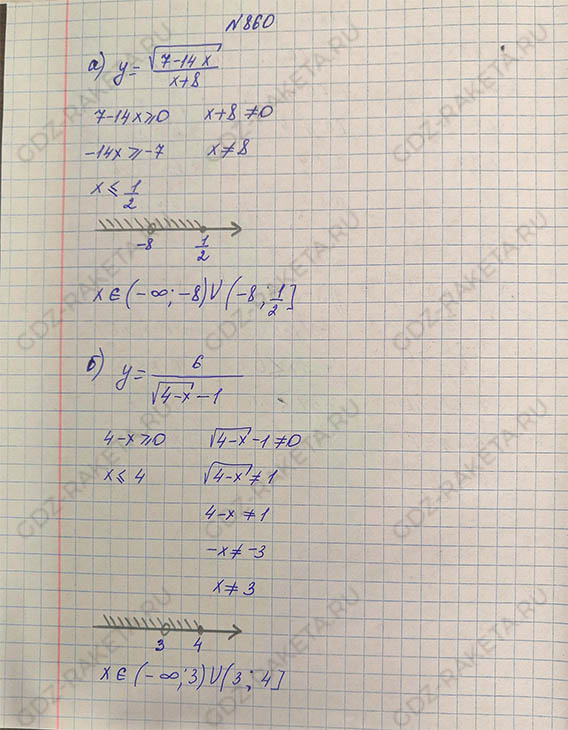 №860
а) y = √(7-14x) / (x+8)
7-14x ≥ 0   x+8 ≠ 0
-14x ≥ -7   x ≠ 8
x ≤ 1/2
-8   1/2
x ∈ (-∞; -8) ∪ (-8; 1/2]
б) y = 6 / (√(4-x) - 1)
4-x ≥ 0   √(4-x) - 1 ≠ 0
x ≤ 4   √(4-x) ≠ 1
4-x ≠ 1
-x ≠ -3
x ≠ 3
3   4
x ∈ (-∞; 3) ∪ (3; 4]
GDZ-RAKETA.RU